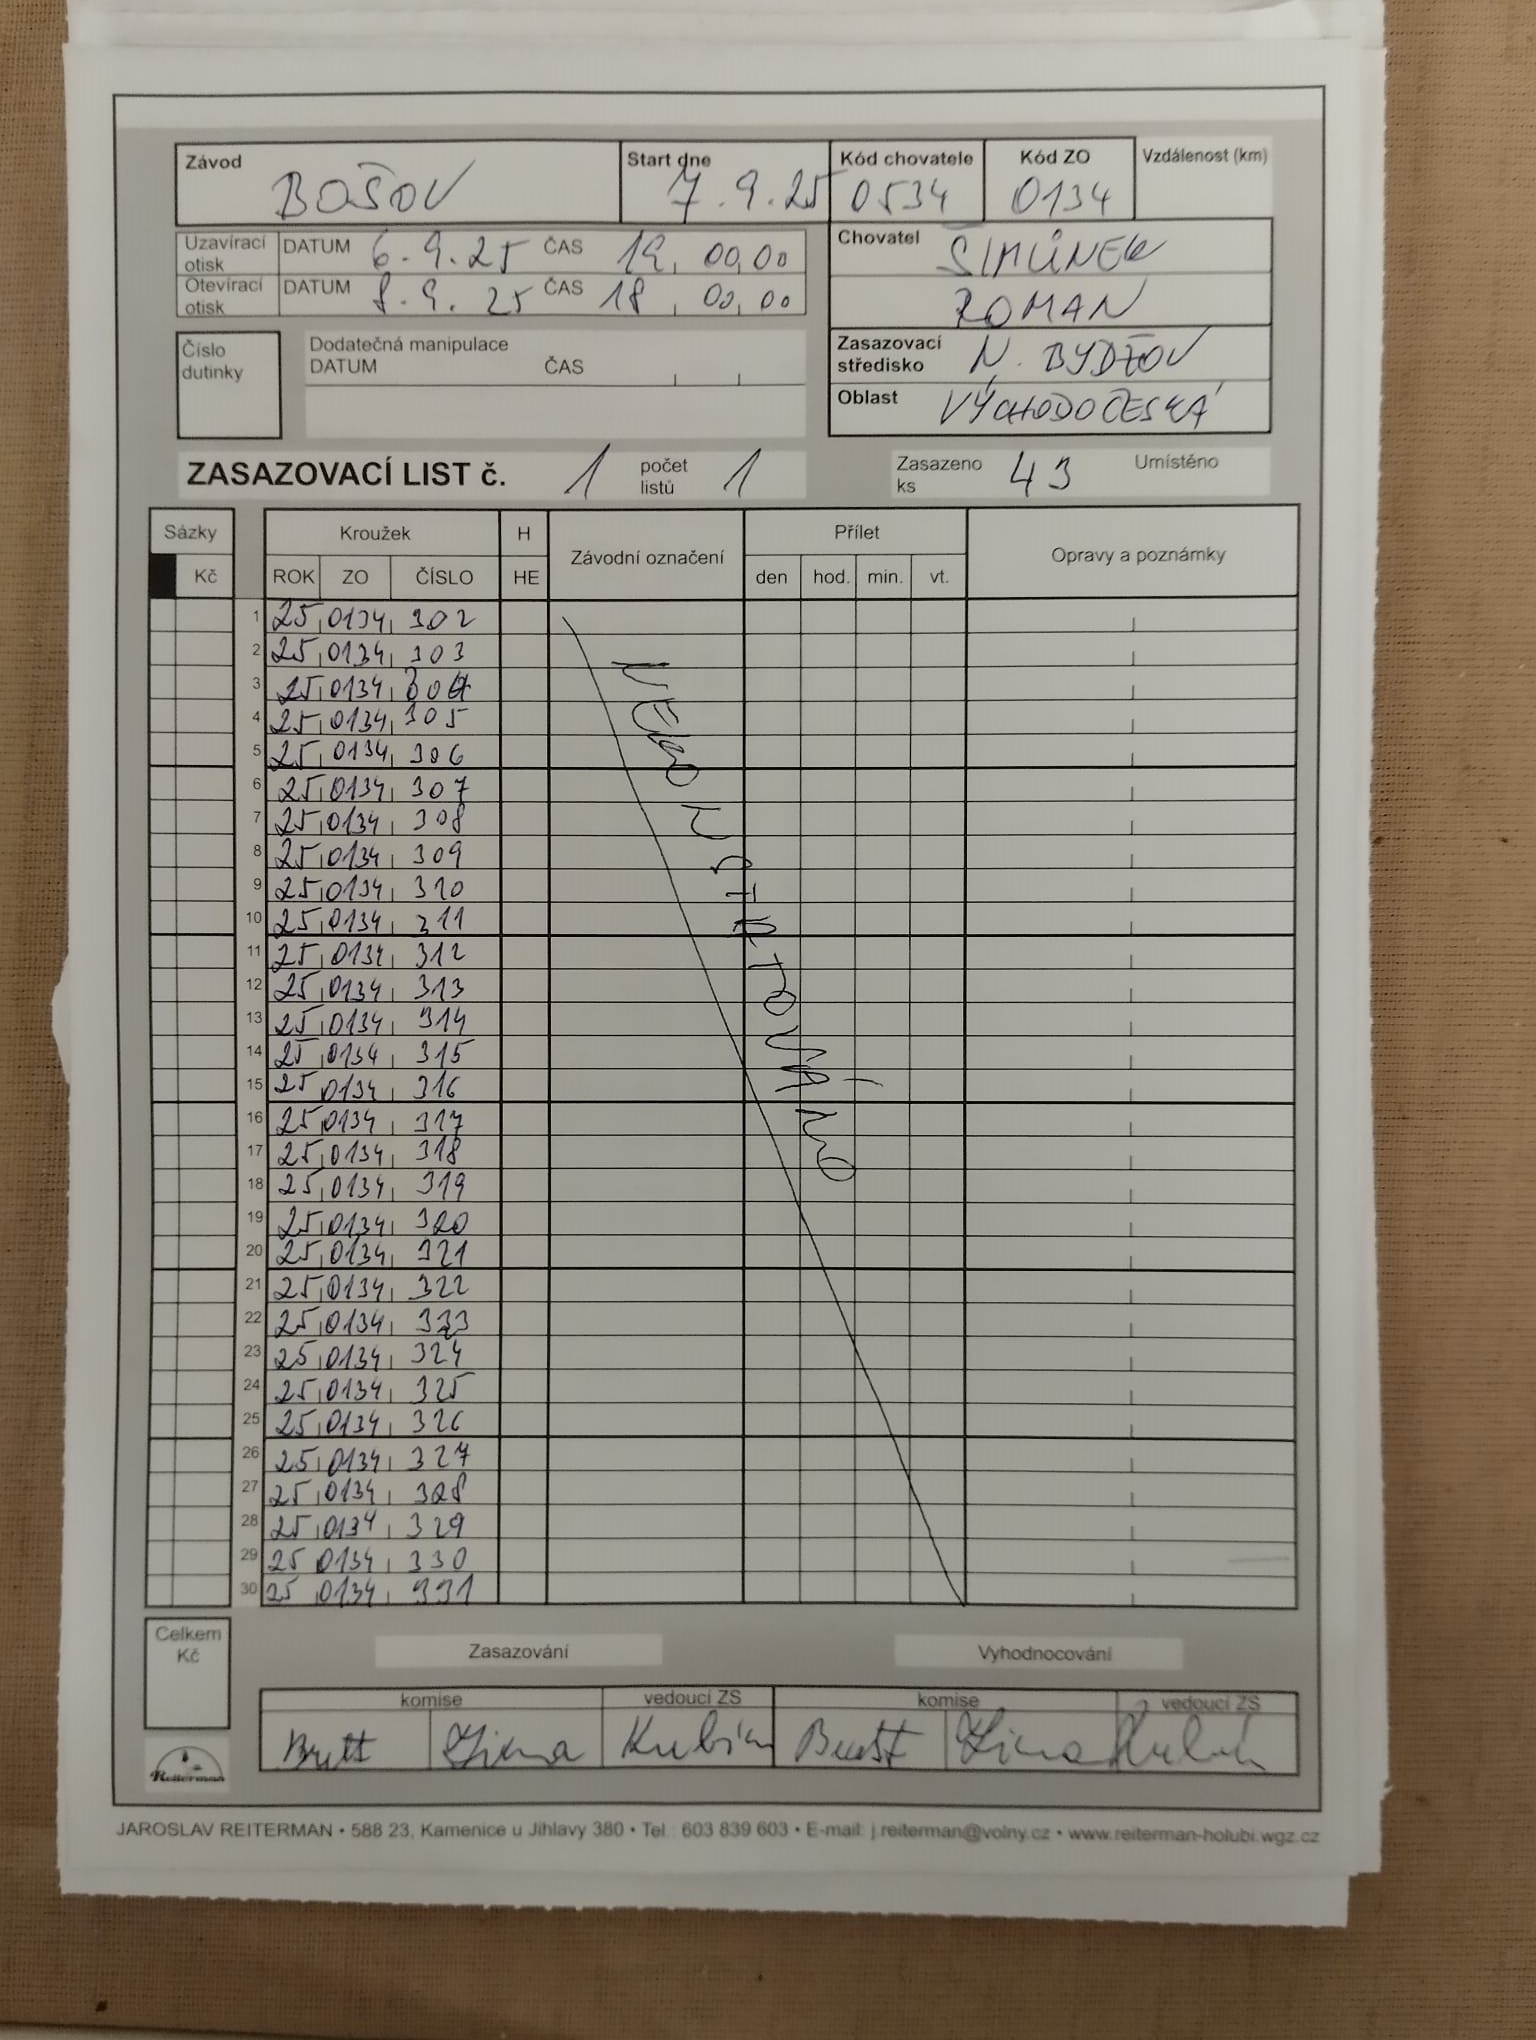 Závod Start dne Kód chovatele Kód ZO Vzdálenost (km)
BOŠOV 7.9.25 0534 0134
Uzavírací otisk DATUM 6.9.25 ČAS 19,00,00
Otevírací otisk DATUM 8.9.25 ČAS 18,00,00
Chovatel ŠIMŮNEK
ROMAN
Číslo dutinky
Dodatečná manipulace
DATUM ČAS
Zasazovací středisko N. BYDŽOV
Oblast VÝCHODOČESKÁ
ZASAZOVACÍ LIST č. 1 počet listů 1 Zasazeno ks 43 Umístěno
Sázky Kroužek H Závodní označení Přílet Opravy a poznámky
Kč ROK ZO ČÍSLO HE den hod. min. vt.
1 25 0134 302
2 25 0134 303
3 25 0134 304
4 25 0134 305
5 25 0134 306
6 25 0134 307
7 25 0134 308
8 25 0134 309
9 25 0134 310
10 25 0134 311
11 25 0134 312
12 25 0134 313
13 25 0134 314
14 25 0134 315
15 25 0134 316
16 25 0134 317
17 25 0134 318
18 25 0134 319
19 25 0134 320
20 25 0134 321
21 25 0134 322
22 25 0134 323
23 25 0134 324
24 25 0134 325
25 25 0134 326
26 25 0134 327
27 25 0134 328
28 25 0134 329
29 25 0134 330
30 25 0134 331
Celkem Kč
Zasazování Vyhodnocování
komise vedoucí ZS komise vedoucí ZS
Reiterman
JAROSLAV REITERMAN • 588 23, Kamenice u Jihlavy 380 • Tel.: 603 839 603 • E-mail: j.reiterman@volny.cz • www.reiterman-holubi.wgz.cz